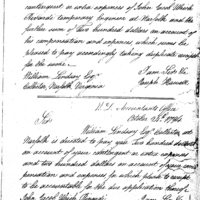 contingent or extra expenses of John Jacob Ulrich
Rivardi temporary Engineer at Norfolk and the
further sum of two hundred dollars on account of
his compensation and expenses which sums be
pleased to pay accordingly taking duplicate receipts
for the same
William Lindsay Esqr
Collector, Norfolk, Virginia
Joseph Howell
Octobr 23d 1794
Sir
William Lindsay Esqr Collector, at
Norfolk is directed to pay you Two hundred dollars
on account of your contingent or extra expenses
and two hundred dollars on account of your com-
pensation and expenses for which please to
accountable for the due application thereof
John Jacob Ulrich Rivardi